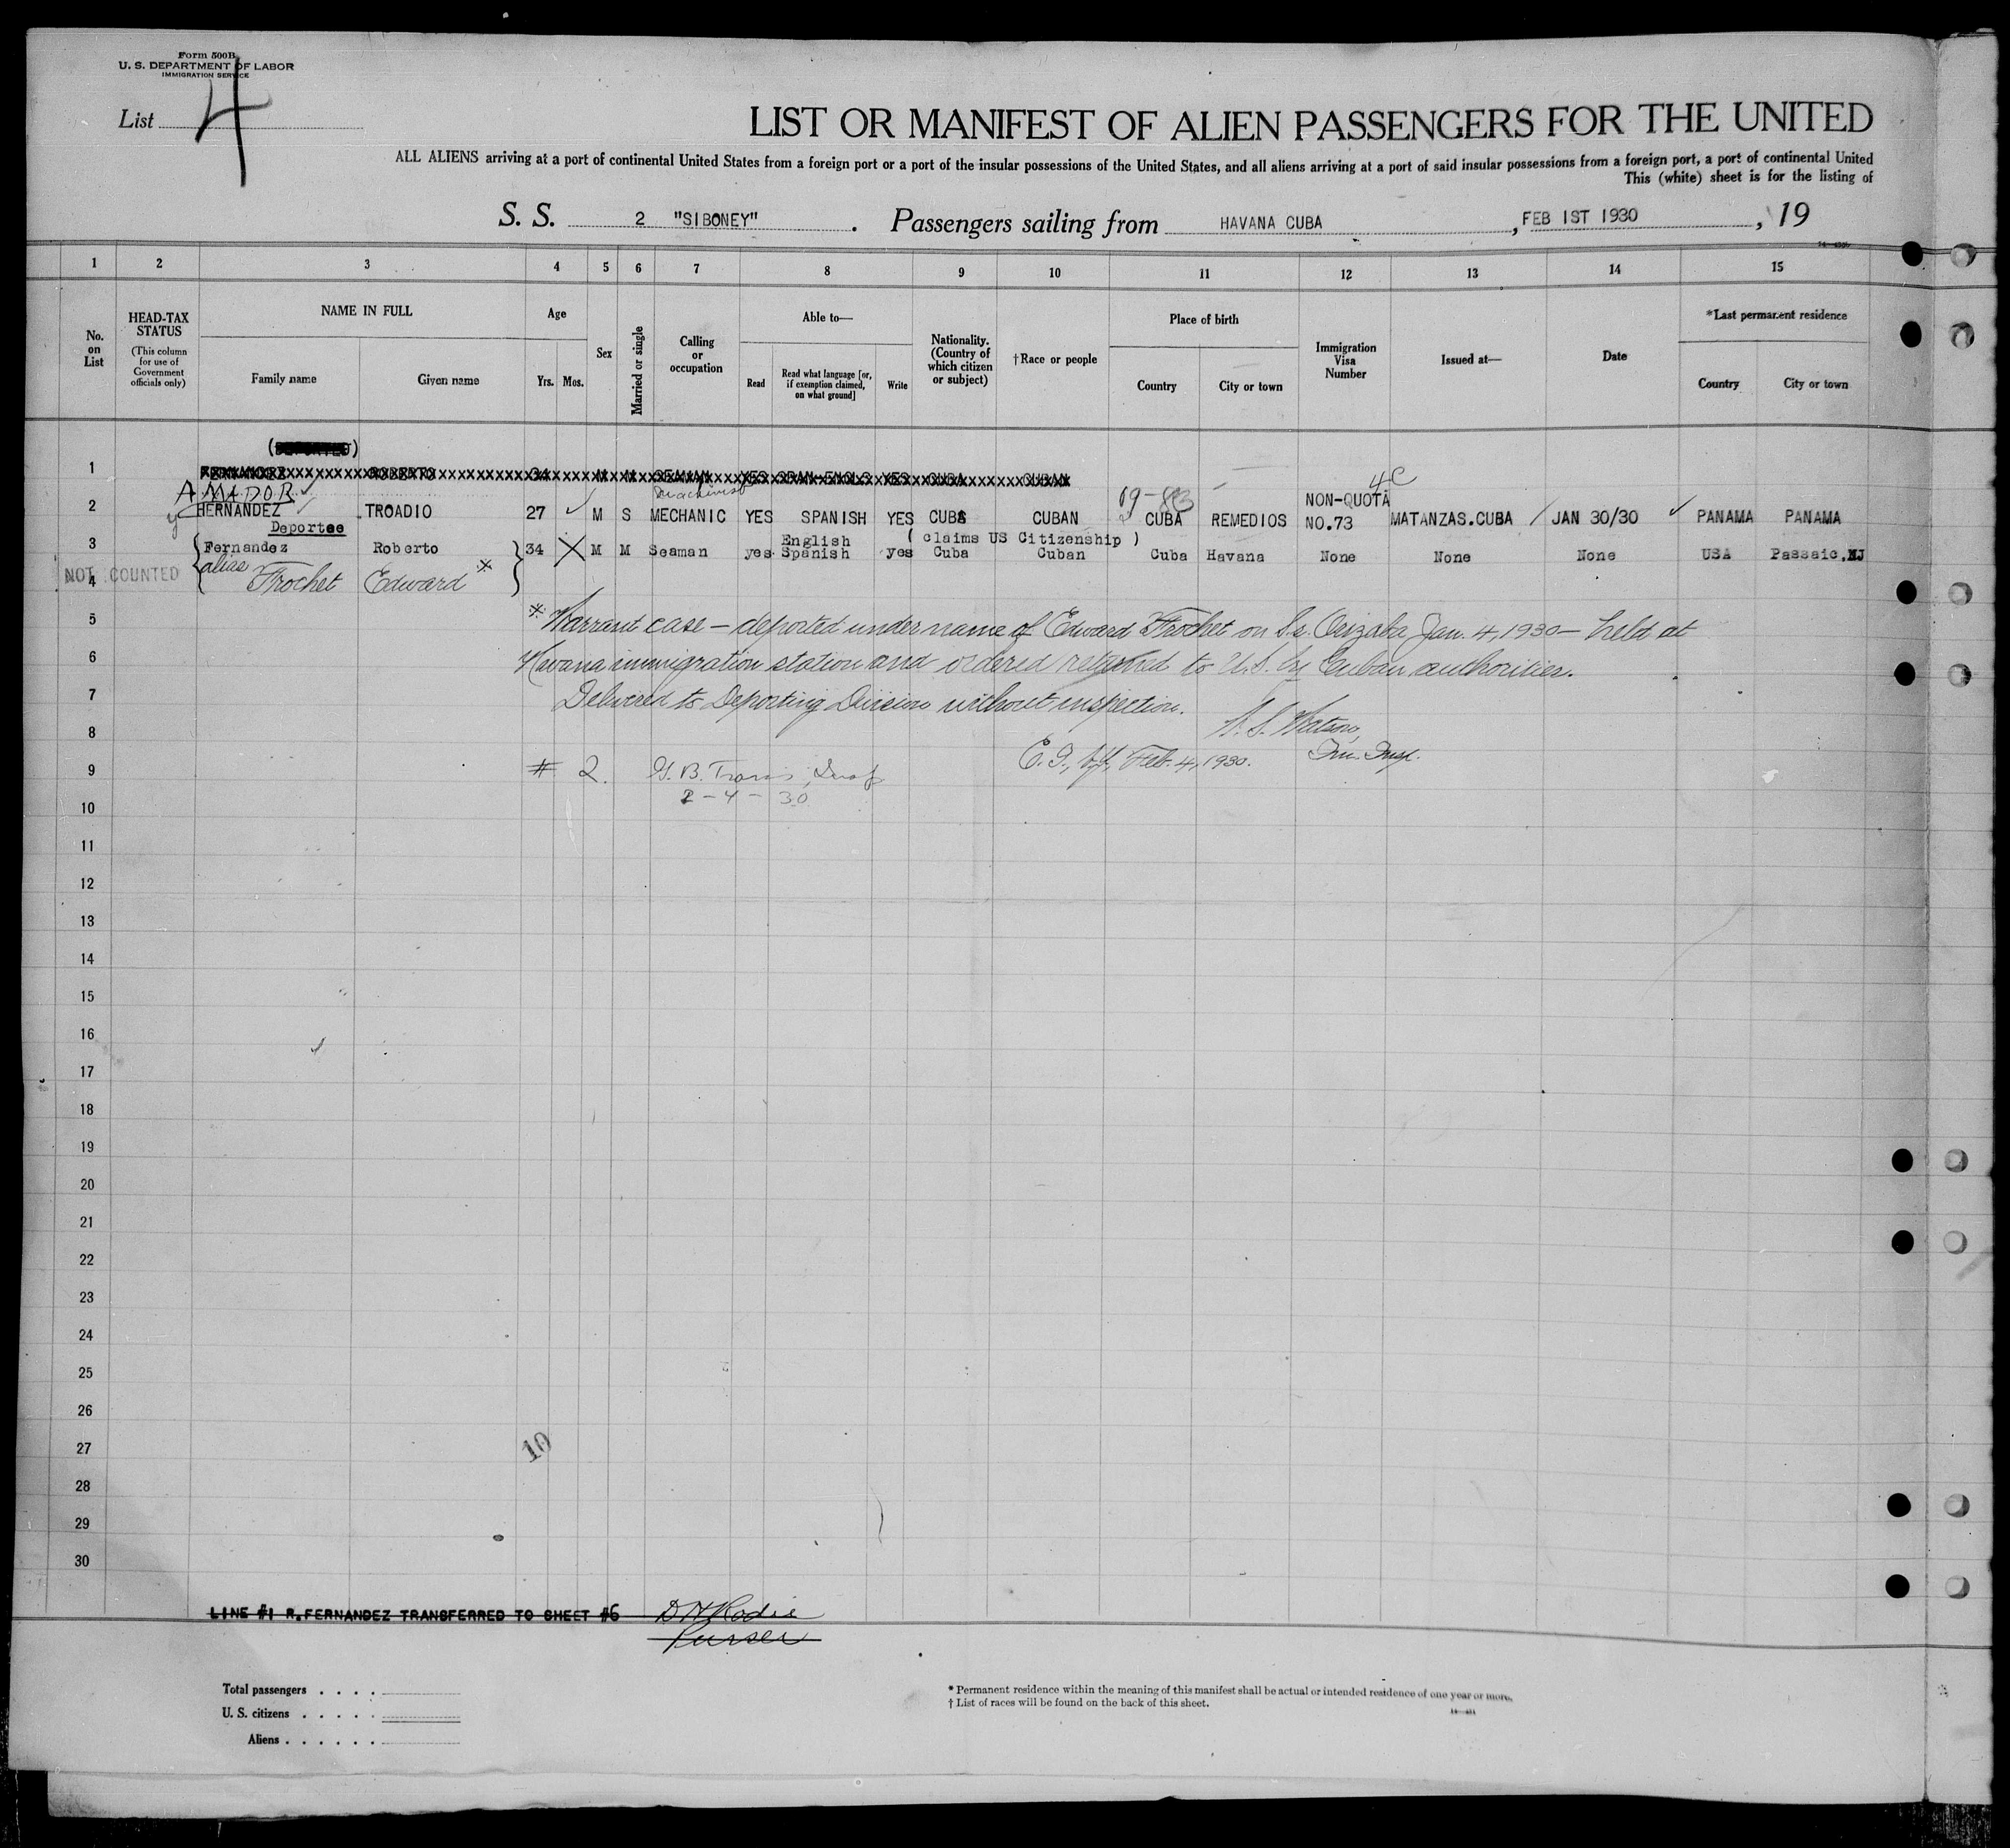 Form 500B
U. S. DEPARTMENT OF LABOR
IMMIGRATION SERVICE
List 4
LIST OR MANIFEST OF ALIEN PASSENGERS FOR THE UNITED
ALL ALIENS arriving at a port of continental United States from a foreign port or a port of the insular possessions of the United States, and all aliens arriving at a port of said insular possessions from a foreign port, a port of continental United
This (white) sheet is for the listing of
S. S. 2 "SIBONEY" . Passengers sailing from HAVANA CUBA , FEB 1ST 1930 , 19
1 2 3 4 5 6 7 8 9 10 11 12 13 14 15
No. on List
HEAD-TAX STATUS
(This column for use of Government officials only)
NAME IN FULL
Family name
Given name
Age
Yrs.
Mos.
Sex
Married or single
Calling or occupation
Able to—
Read
Read what language [or, if exemption claimed, on what ground]
Write
Nationality. (Country of which citizen or subject)
†Race or people
Place of birth
Country
City or town
Immigration Visa Number
Issued at—
Date
*Last permanent residence
Country
City or town
(DEPORTED)
1 FERNANDEZ ROBERTO 34 M M SEAMAN YES SPAN-ENGLS YES CUBA CUBAN
AMADOR Machinist 19-83 4C
2 y HERNANDEZ TROADIO 27 M S MECHANIC YES SPANISH YES CUBA CUBAN CUBA REMEDIOS NON-QUOTA NO.73 MATANZAS.CUBA JAN 30/30 PANAMA PANAMA
Deportee
English ( claims US Citizenship )
3 Fernandez Roberto 34 M M Seaman yes Spanish yes Cuba Cuban Cuba Havana None None None USA Passaic.NJ
alias
NOT COUNTED
4 Frochet Edward *
5 * Warrant case – deported under name of Edward Frochet on S.s. Orizaba Jan. 4, 1930 – held at
6 Havana immigration station and ordered returned to U.S. by Cuban authorities.
7 Delivered to Deporting Division without inspection.
8 Watson,
Imm. Insp.
E. I., N.Y., Feb. 4, 1930.
9 # 2. Insp
2-4-30
10
11
12
13
14
15
16
17
18
19
20
21
22
23
24
25
26
27
10
28
29
30
LINE #1 R.FERNANDEZ TRANSFERRED TO SHEET #6
Purser
Total passengers . . . .
U. S. citizens . . . . .
Aliens . . . . . .
* Permanent residence within the meaning of this manifest shall be actual or intended residence of one year or more.
† List of races will be found on the back of this sheet.